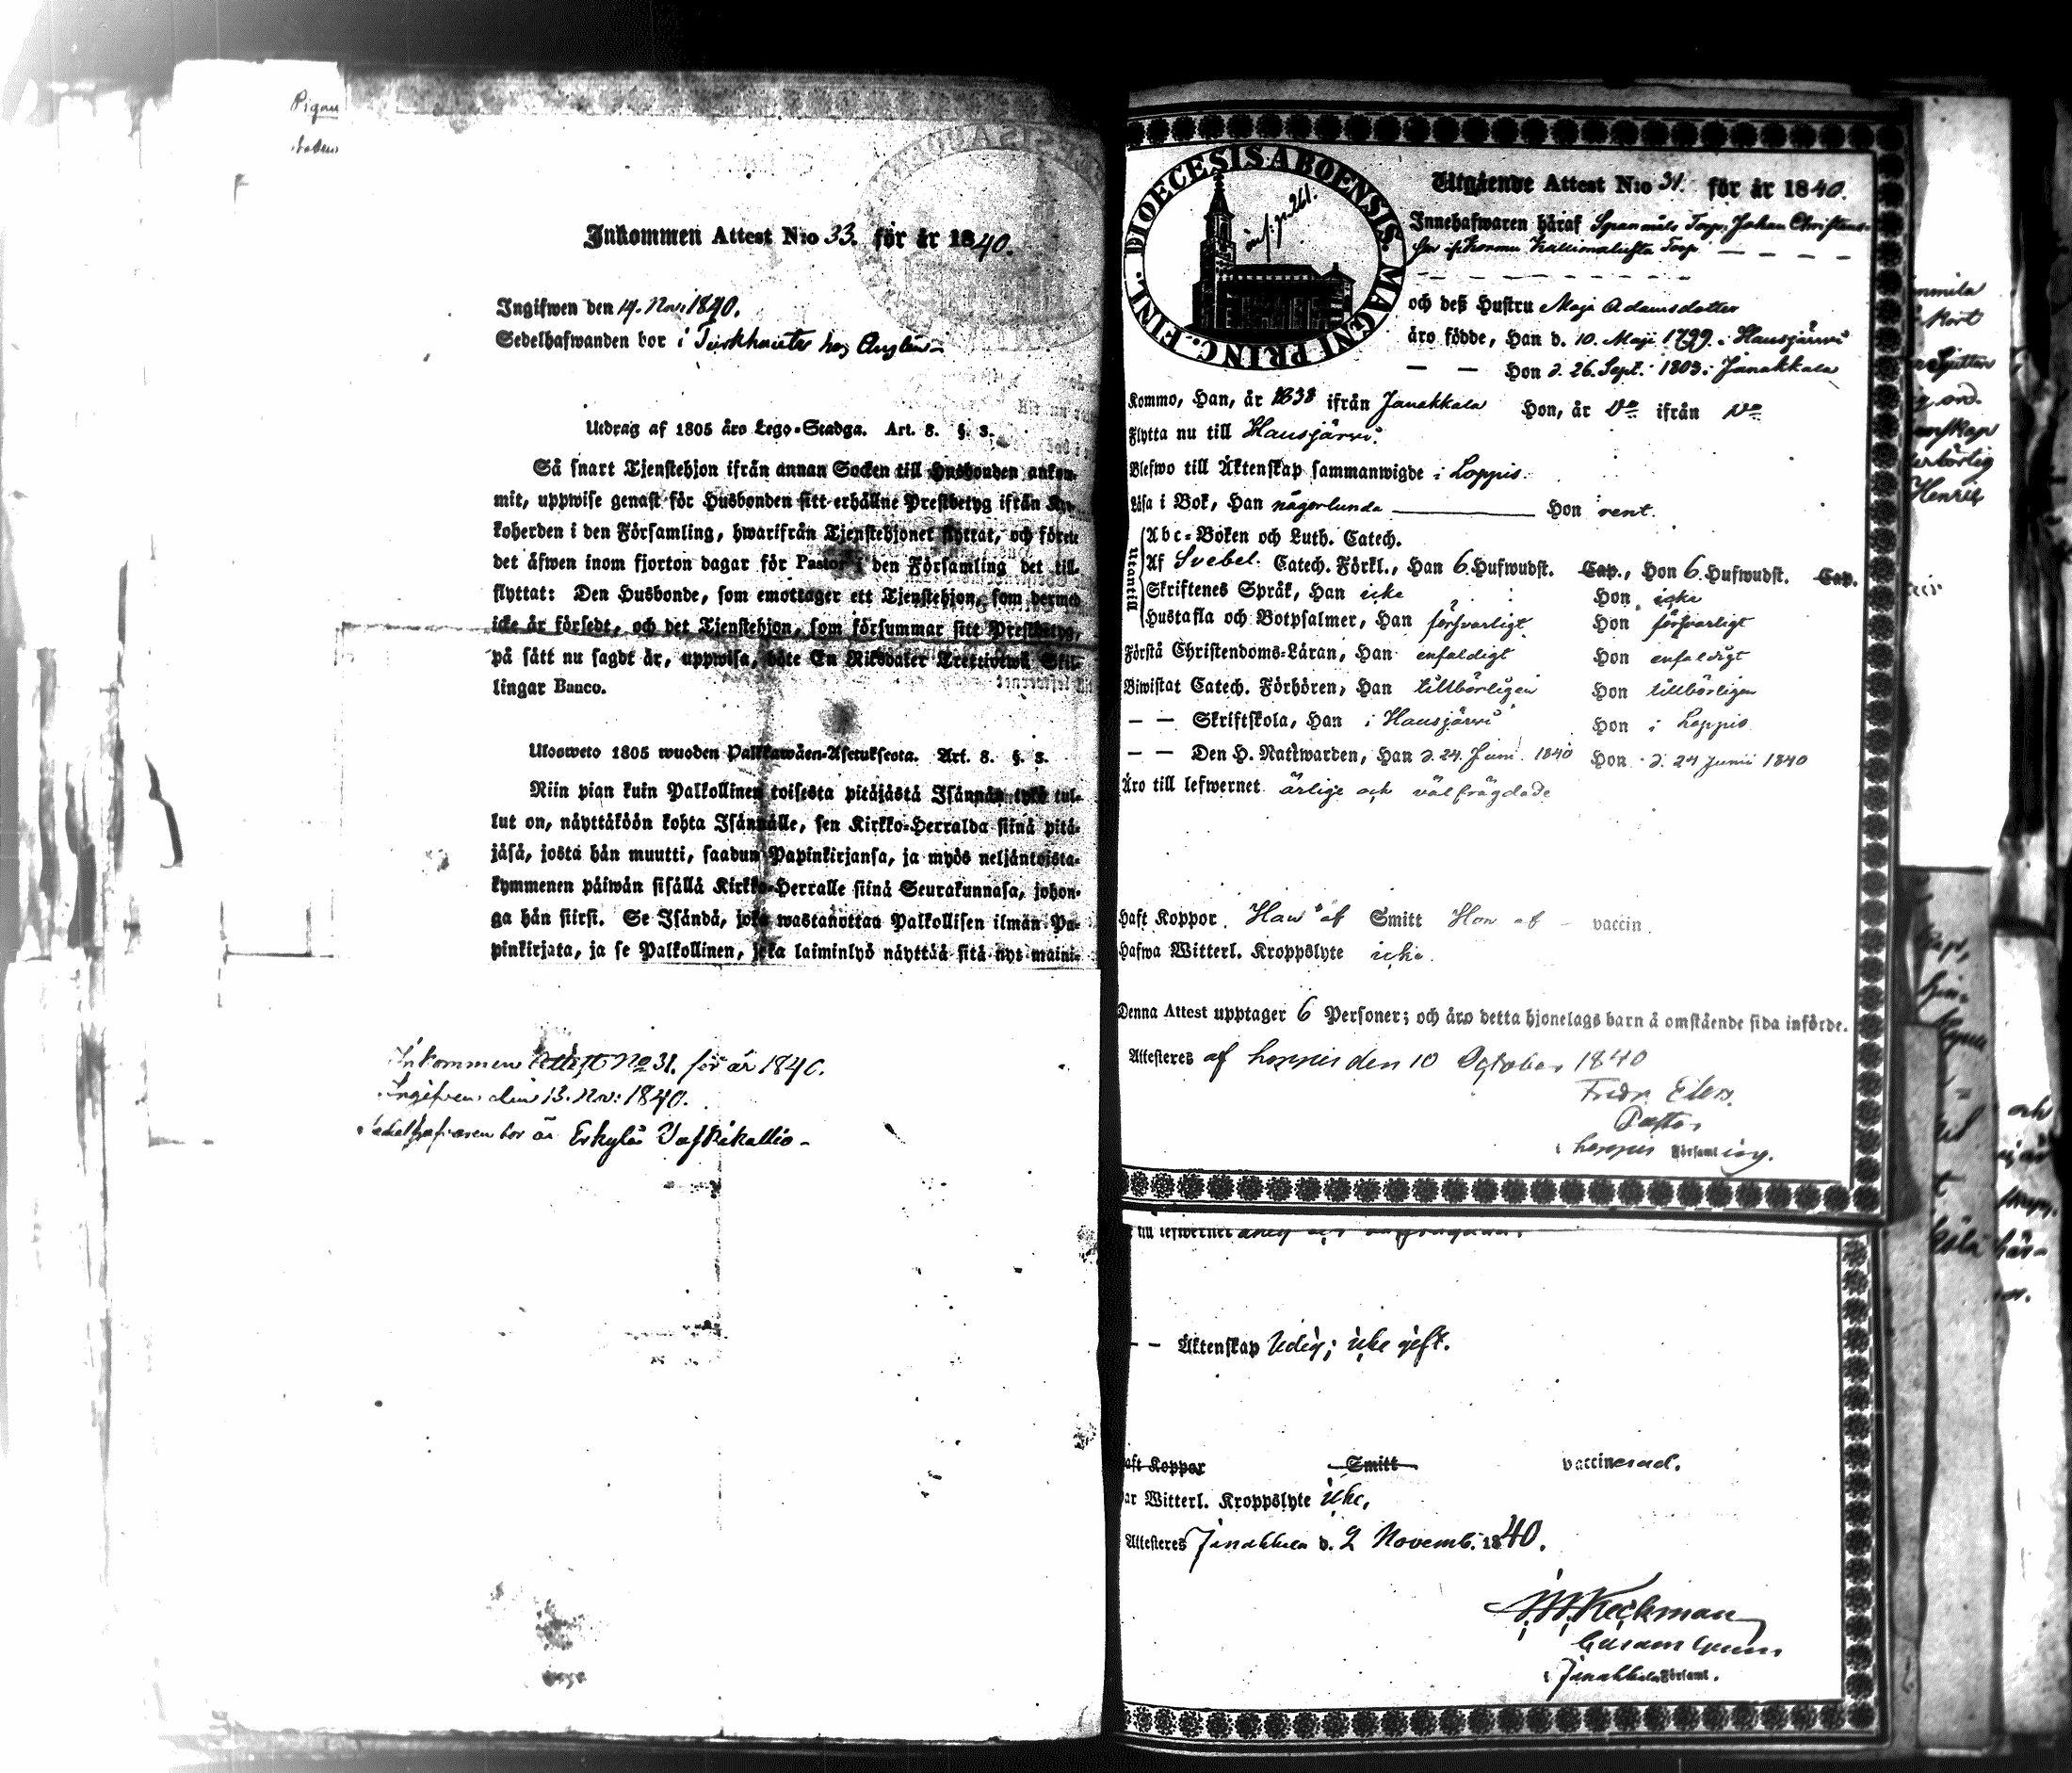 Pigan
Inkommen Attest N:o 33. för år 1840.
Ingifwen den 14. Nov: 1840.
Sedelhafwanden bor i Turkhauta hos
Utdrag af 1805 års Lego-Stadga. Art. 8. §. 3.
Så snart Tjenstehjon ifrån annan Socken till Husbonden ankom-
mit, uppwise genast för Husbonden sitt erhållne Prestbetyg ifrån Kyr-
koherden i den Församling, hwarifrån Tjenstehjonet flyttat, och förete
det äfwen inom fjorton dagar för Pastor i den Församling det till-
flyttat: Den Husbonde, som emottager ett Tjenstehjon, som dermed
icke är försedt, och det Tjenstehjon, som försummar sitt Prestbetyg,
på sätt nu sagdt är, uppwisa, böte En Riksdaler Trettiotwå Skil-
lingar Banco.
Ulosweto 1805 wuoden Palkkawäen-Asetuksesta. Art. 8. §. 3.
Niin pian kuin Palkollinen toisesta pitäjästä Isännän tykö tul-
lut on, näyttäköön kohta Isännälle, sen Kirkko-Herralda siinä pitä-
jäsä, josta hän muutti, saadun Papinkirjansa, ja myös neljäntoista-
kymmenen päiwän sisällä Kirkko-Herralle siinä Seurakunnasa, johon-
ga hän siirsi. Se Isändä, joka wastanottaa Palkollisen ilman Pa-
pinkirjata, ja se Palkollinen, joka laiminlyö näyttää sitä nyt maini-
Inkommen Attest No 31. för år 1840.
Ingifven den 13. Nov: 1840.
Sedelhafvaren bor å Erkylä Vaskikallio
DIOECESIS ABOENSIS. MAGNI PRINC. FINL.
Utgående Attest N:o 31. för år 1840.
Innehafwaren häraf Torp. Johan Christers-
Son if. Kormu Kallionalusta Torp
och deß Hustru Maja Adamsdotter
äro födde, Han d. 10 Maji 1799. i Hausjärvi
— — Hon d. 26. Sept. 1803. i Janakkala
Kommo, Han, år 1838 ifrån Janakkala Hon, år Do ifrån Do
Flytta nu till Hausjärvi.
Blefwo till Äktenskap sammanwigde i Loppis.
Läsa i Bok, Han någorlunda Hon rent.
Utantill
Abc-Boken och Luth. Catech.
Af Svebel. Catech. Förkl., Han 6 Hufwudst. Cap., Hon 6 Hufwudst. Cap.
Skriftenes Språk, Han icke Hon icke
Hustafla och Botpsalmer, Han försvarligt Hon försvarligt
Förstå Christendoms-Läran, Han enfaldigt Hon enfaldigt
Biwistat Catech. Förhören, Han tillbörligen Hon tillbörligen
— — Skriftskola, Han i Hausjärvi Hon i Loppis
— — Den H. Nattwarden, Han d. 24. Juni. 1840 Hon d. 24 Junii 1840
Äro till lefwernet ärlige och välfrägdade
Haft Koppor Han af Smitt Hon af — vaccin
Hafwa Witterl. Kroppslyte icke.
Denna Attest upptager 6 Personer; och äro detta hjonelags barn å omstående sida införde.
Attesteres af Loppis den 10 October 1840
Fredr. Elers.
Pastor
i Loppis Församling.
till lefwernet
— — Äktenskap ledig; icke gift.
aft Koppor Smitt vaccinerad.
ar Witterl. Kroppslyte icke,
Attesteres Janakkala d. 2 Novemb. 1840.
Keckman
i Janakkala Församl.
Henric